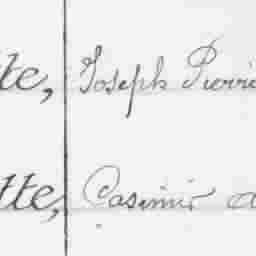 tte, Joseph Pierre
tte, Casimir a